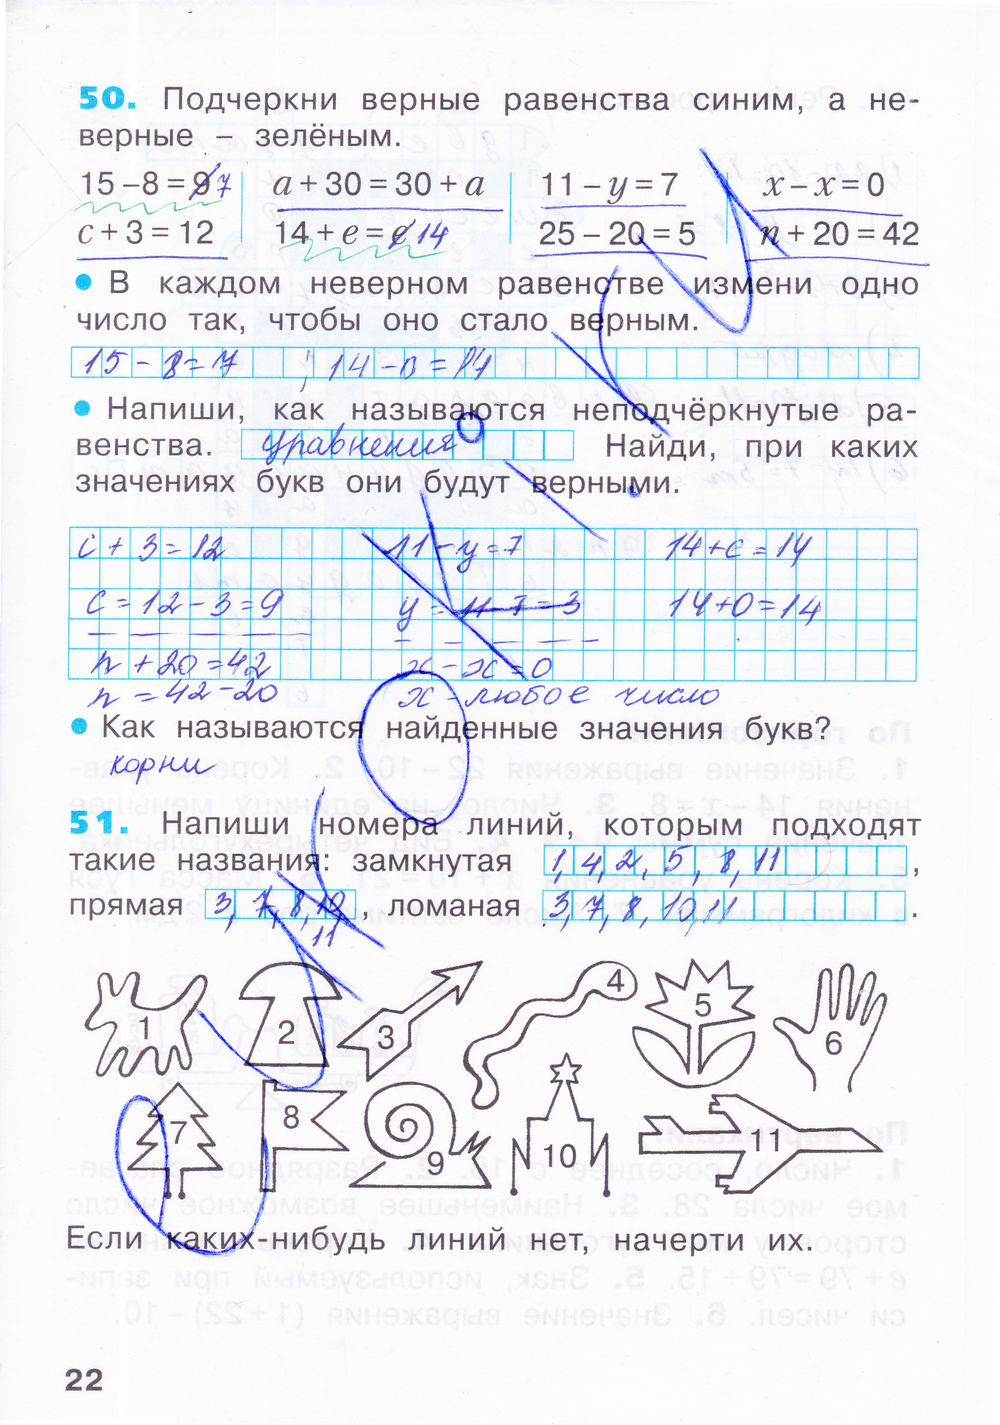 50. Подчеркни верные равенства синим, а не-
верные – зелёным.
15 – 8 = 9 7 a + 30 = 30 + a 11 – y = 7 x – x = 0
c + 3 = 12 14 + e = e 14 25 – 20 = 5 n + 20 = 42
• В каждом неверном равенстве измени одно
число так, чтобы оно стало верным.
15 – 8 = 7 , 14 – 0 = 14
• Напиши, как называются неподчёркнутые ра-
венства. уравнения Найди, при каких
значениях букв они будут верными.
c + 3 = 12 11 – y = 7 14 + e = 14
c = 12 – 3 = 9 y = 11 – 7 = 3 14 + 0 = 14
n + 20 = 42 x – x = 0
n = 42 – 20 x – любое число
• Как называются найденные значения букв?
корни
51. Напиши номера линий, которым подходят
такие названия: замкнутая 1, 4, 2, 5, 8, 11 ,
прямая 3, 7, 8, 10, ломаная 3, 7, 8, 10, 11 .
11
1 2 3 4 5 6
7 8 9 10 11
Если каких-нибудь линий нет, начерти их.
22